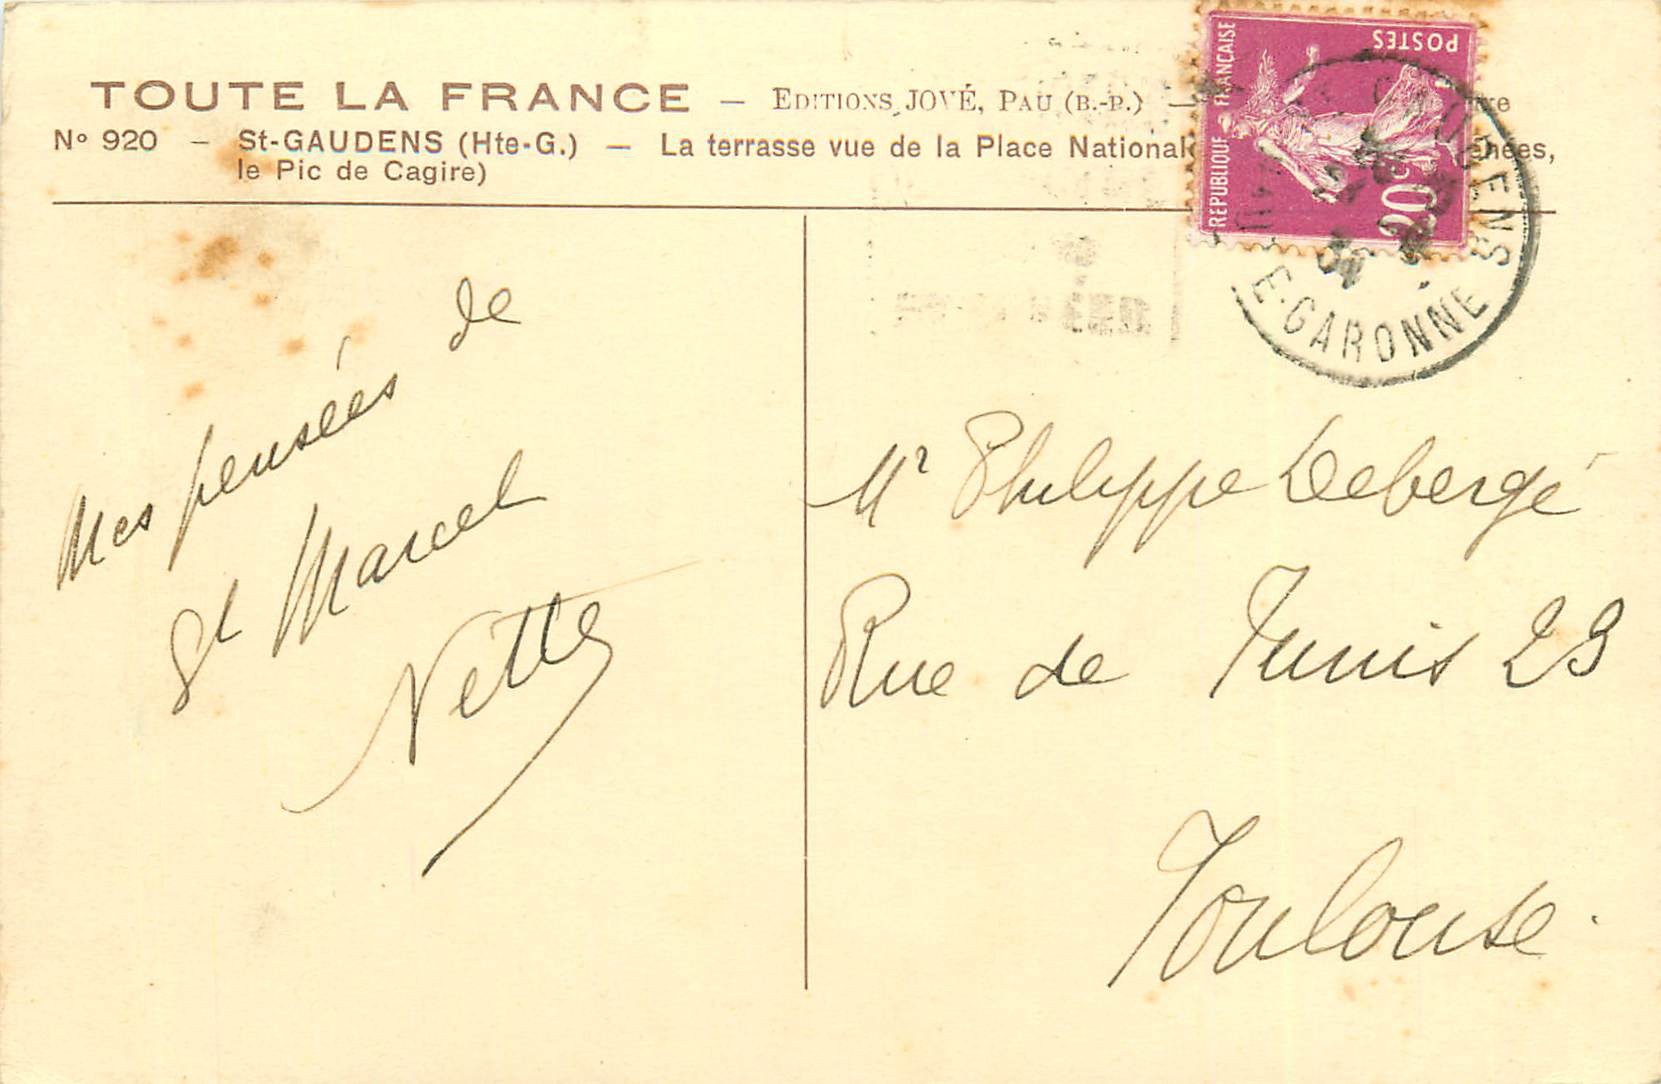 TOUTE LA FRANCE — EDITIONS JOVÉ, PAU (B.-P.) —
N° 920 — St-GAUDENS (Hte-G.) — La terrasse vue de la Place National
le Pic de Cagire)
REPUBLIQUE FRANÇAISE
POSTES
20c
GAUDENS
E-GARONNE
Mes pensées de
St Marcel
Nette
Mr Philippe Debergé
Rue de Tunis 29
Toulouse.